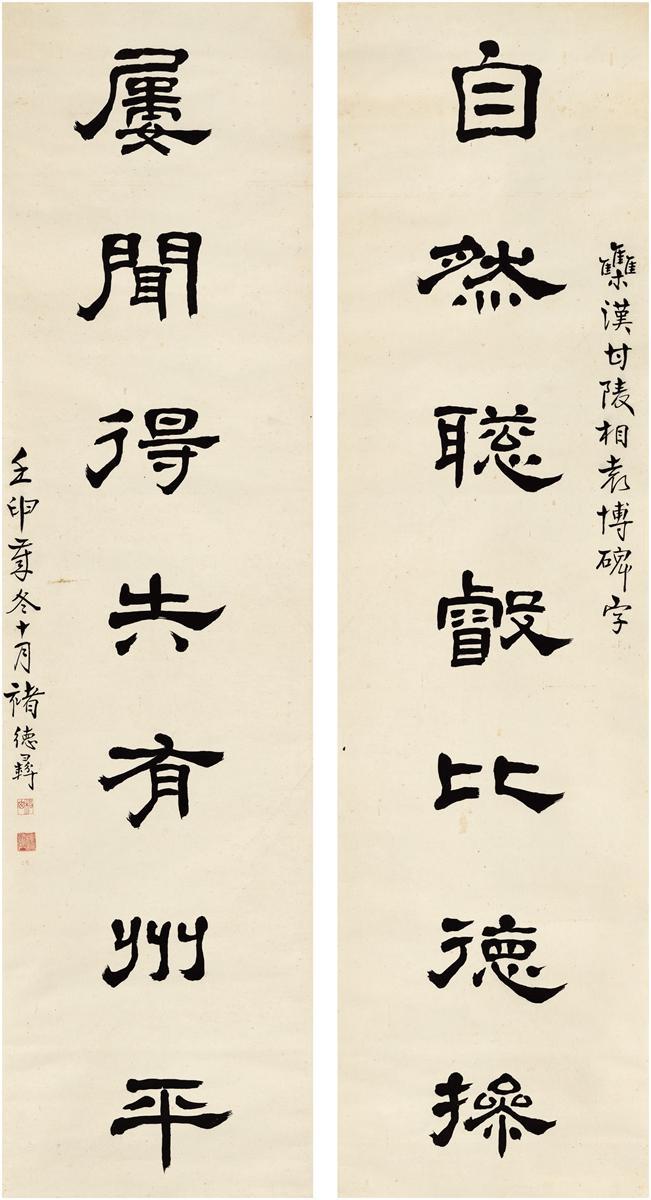 雧漢甘陵相袁博碑字
自然聰叡比德操
屢聞得失有州平
壬申年冬十月褚德彝